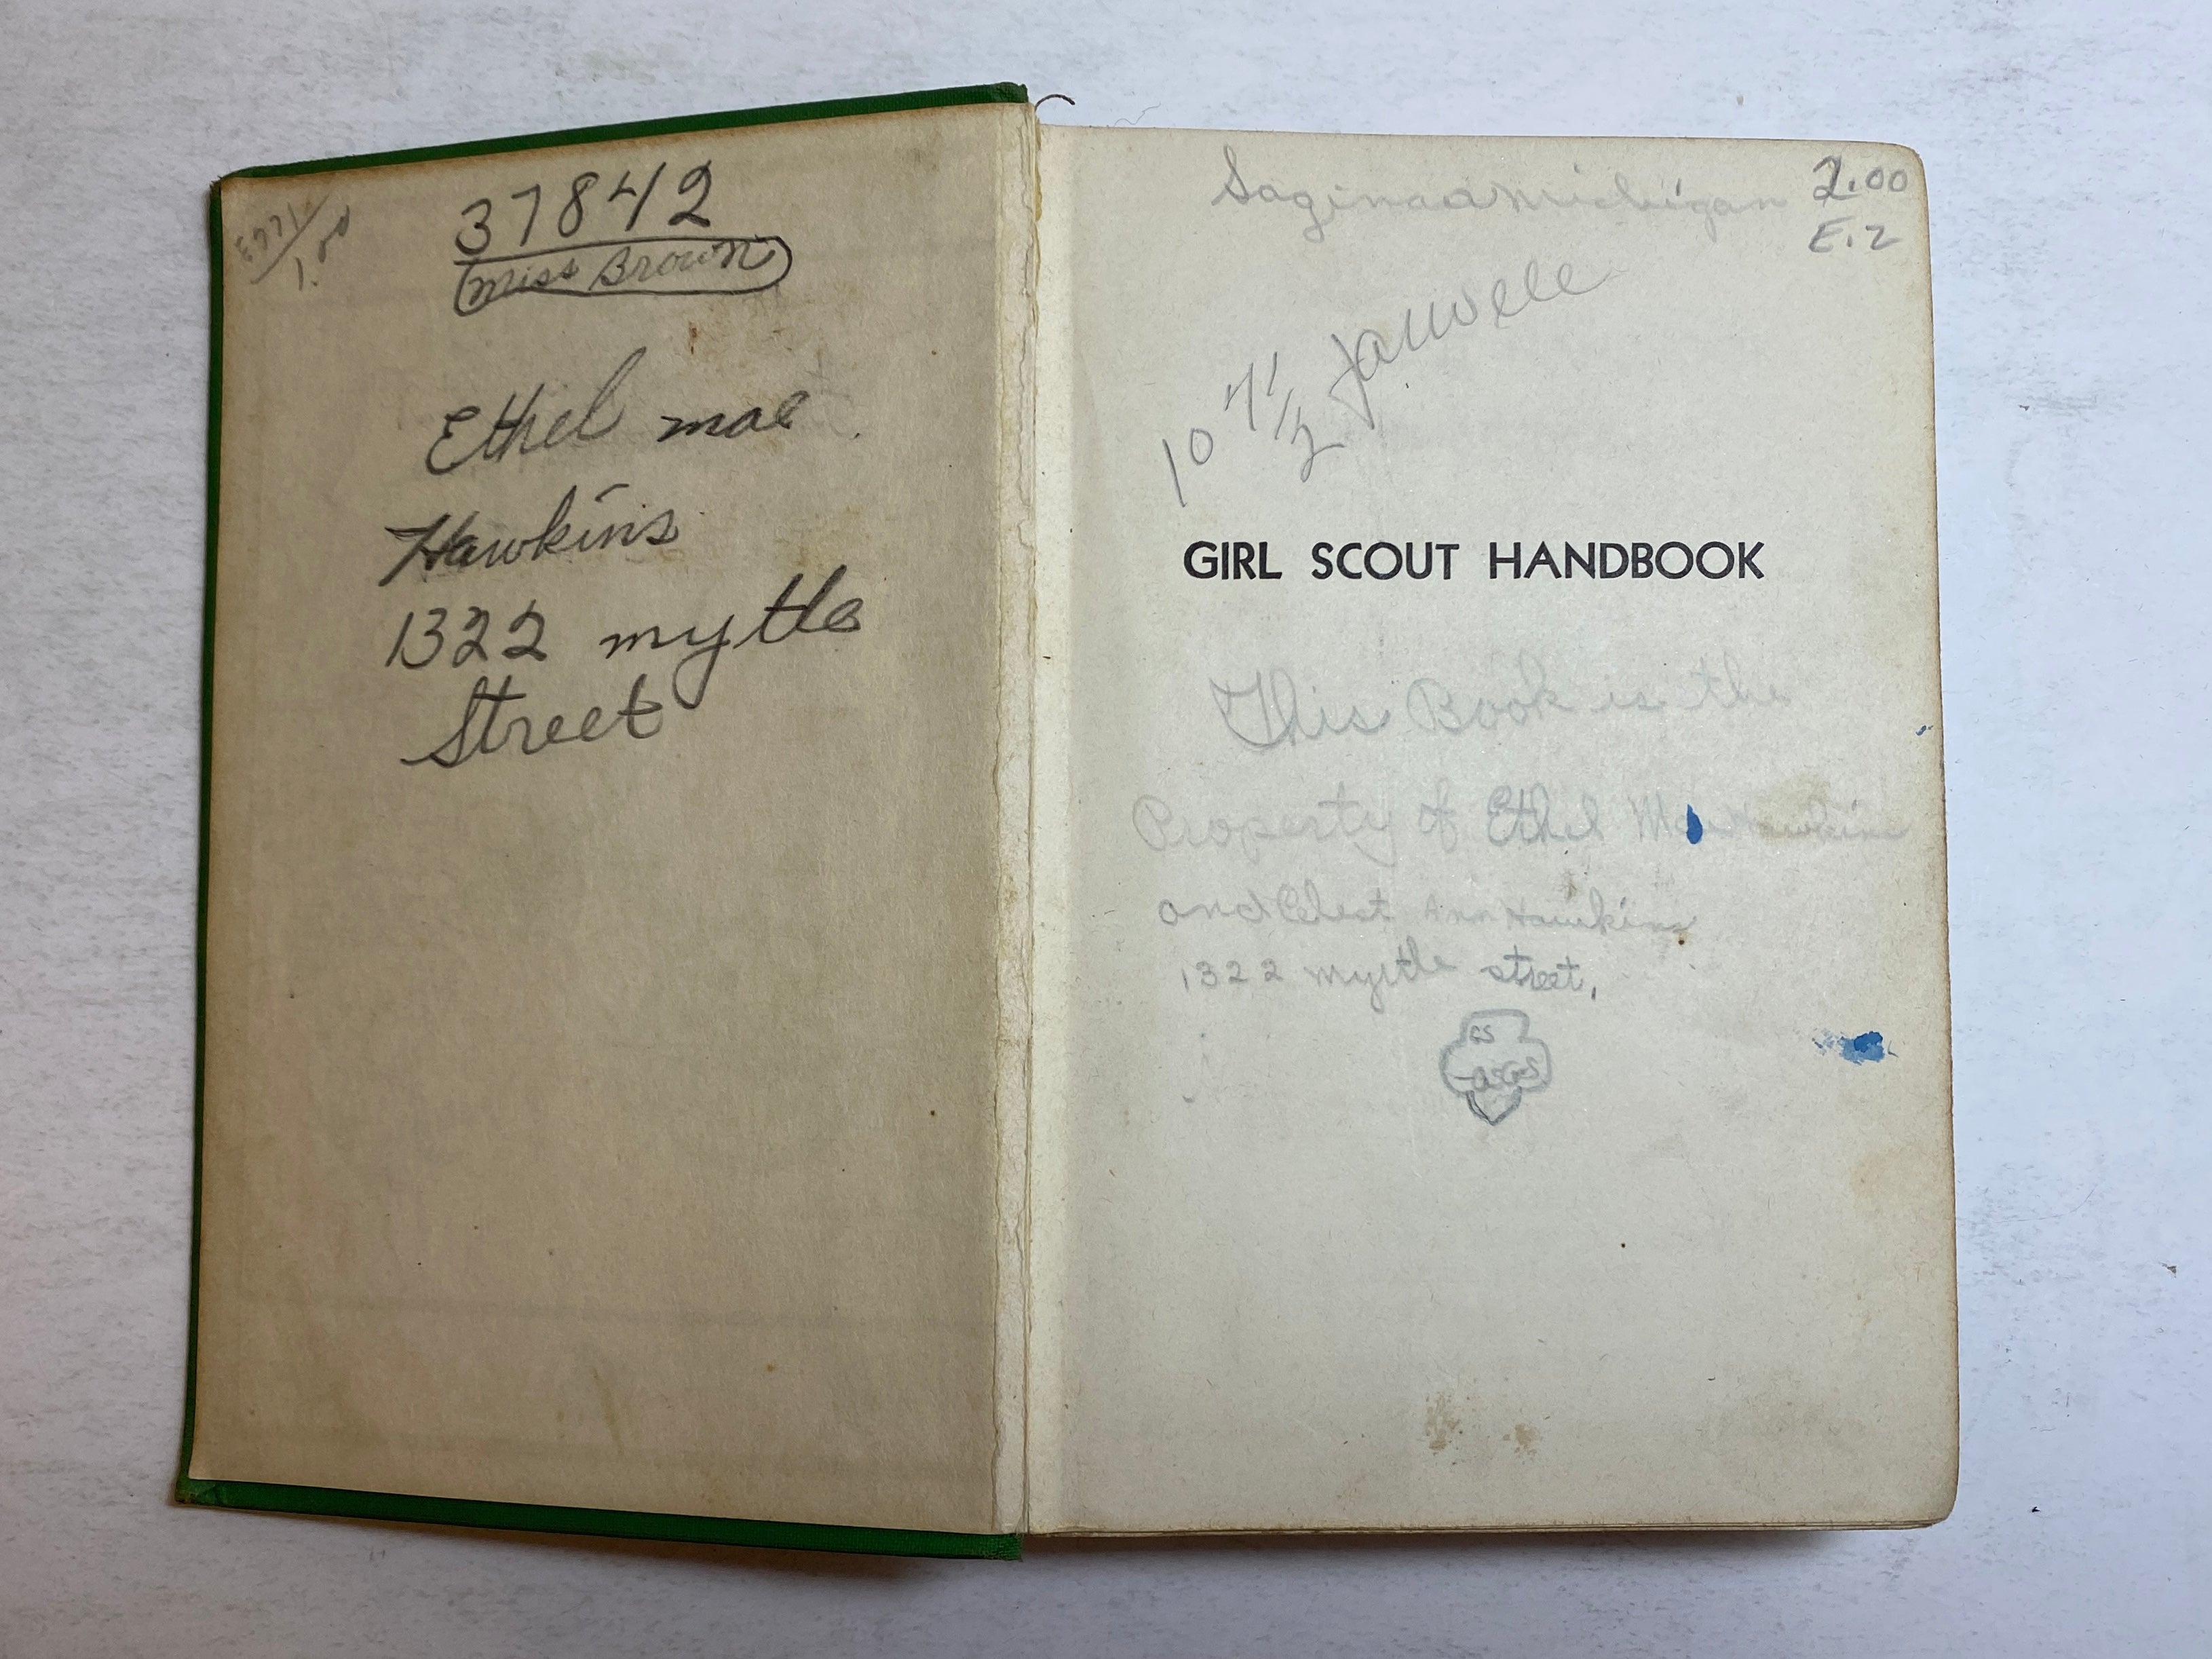 1.00
37842
Miss Brown
Ethel mae
Hawkins
1322 mytle
Street
Saginaa Michigan
2.00
E.2
10 7 1/2
GIRL SCOUT HANDBOOK
This Book is the
Property of Ethel Mae Hawkins
and Celest Ann Hawkins
1322 myrtle street,
GS